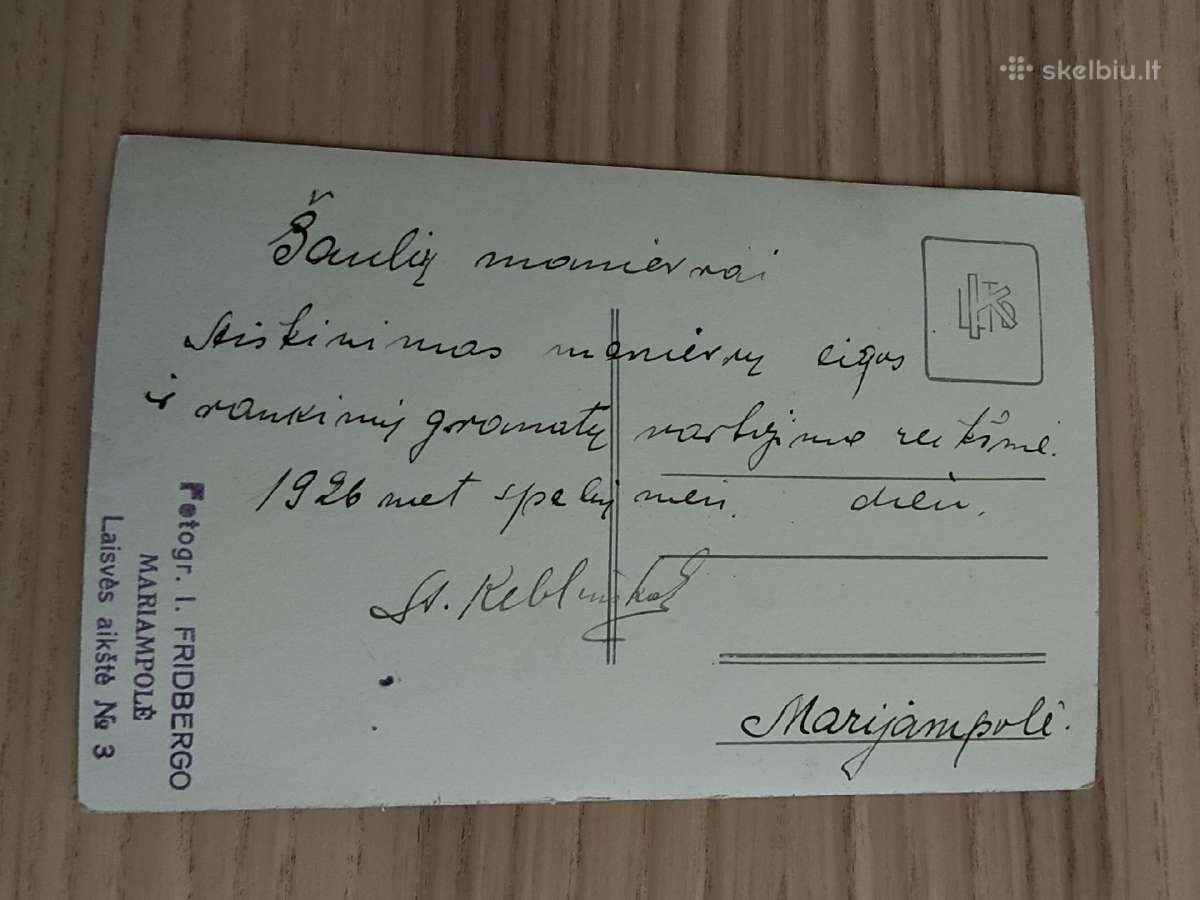 skelbiu.lt
Šaulių manievrai
Aiškinimas manievrų eigos
ir rankinių granatų vartojimo reikšmė.
1926 met spalių mėn. dien.
St. Keblinskas
Marijampolė.
Fotogr. I. FRIDBERGO
MARIAMPOLĖ
Laisvės aikštė № 3